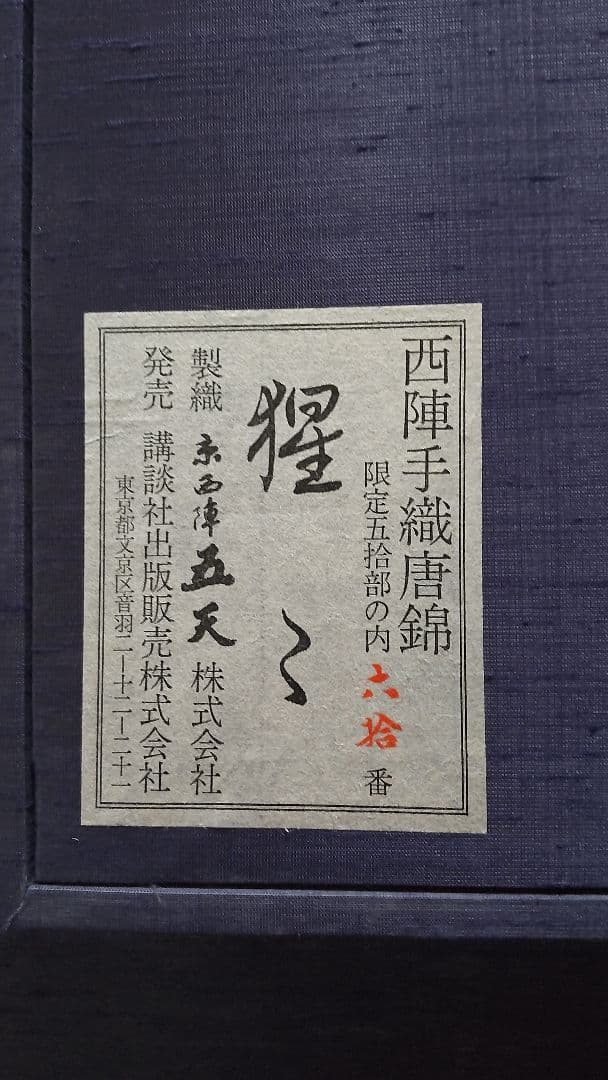 西陣手織唐錦
限定五拾部の内 六拾 番
猩〻
製織 京西陣五天 株式会社
発売 講談社出版販売株式会社
東京都文京区音羽二ー十二ー二十一